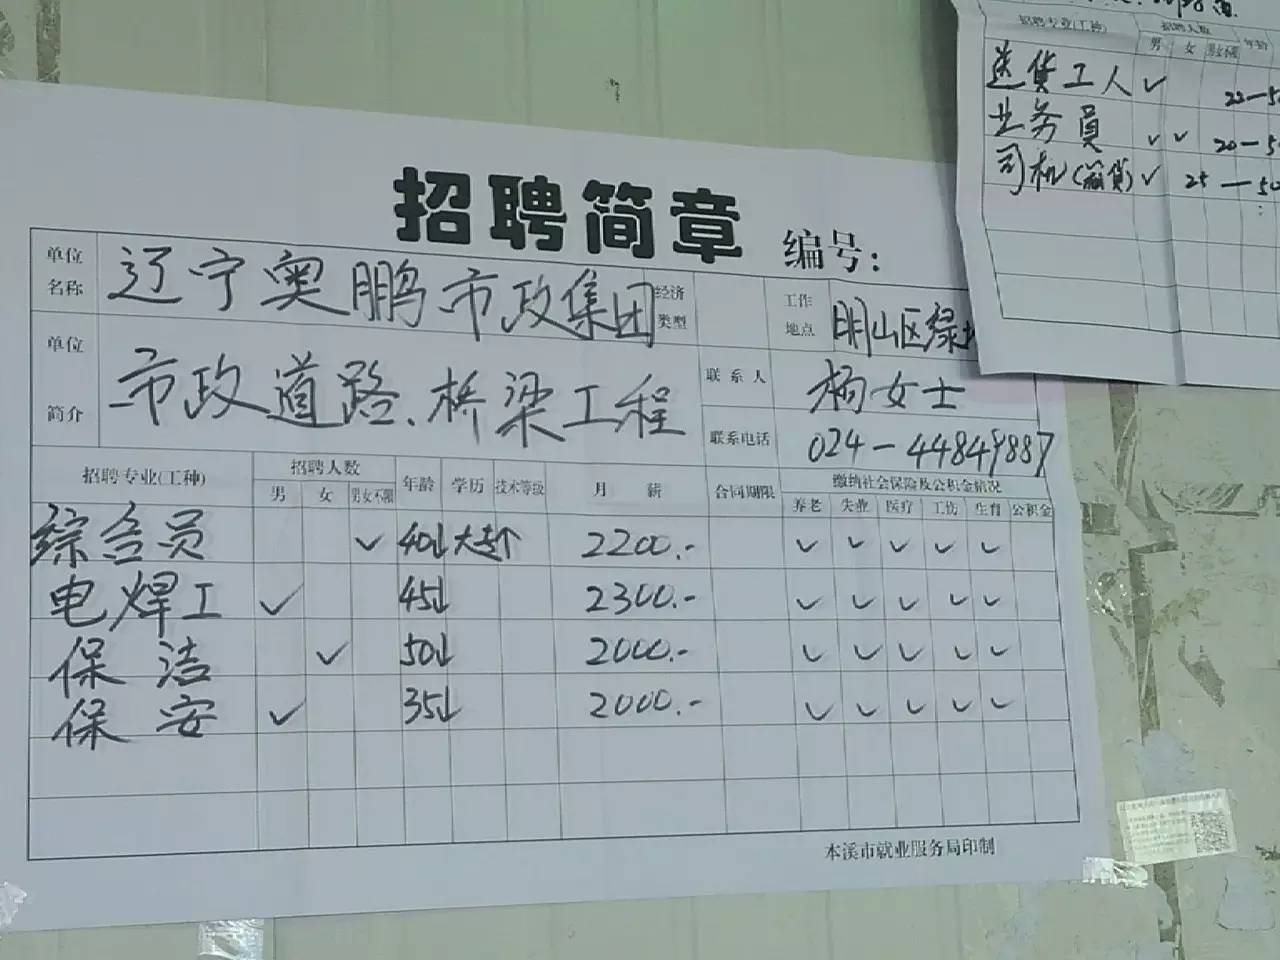 招聘专业(工种) 招聘人数 年龄
男 女 男女不限
送货工人 ✓ 22—50
业务员 ✓ ✓ 20—50
司机 ✓ 25—50
招聘简章
编号:
单位名称 辽宁奥鹏市政集团 经济类型 工作地点 明山区绿
单位简介 市政道路、桥梁工程 联系人 杨女士
联系电话 024-44849887
招聘专业(工种) 招聘人数 年龄 学历 技术等级 月薪 合同期限 缴纳社会保险及公积金情况
男 女 男女不限 养老 失业 医疗 工伤 生育 公积金
综合员 ✓ 40↓ 大专个 2200.- ✓ ✓ ✓ ✓ ✓
电焊工 ✓ 45↓ 2300.- ✓ ✓ ✓ ✓ ✓
保洁 ✓ 50↓ 2000.- ✓ ✓ ✓ ✓ ✓
保安 ✓ 35↓ 2000.- ✓ ✓ ✓ ✓ ✓
本溪市就业服务局印制